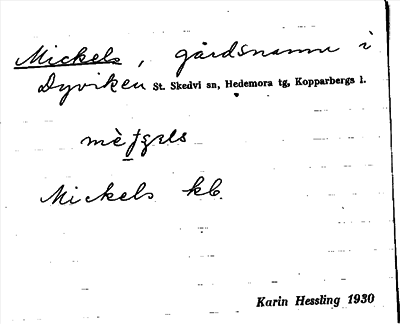 Mickels, gårdsnamn i
Dyviken St. Skedvi sn, Hedemora tg, Kopparbergs l.
Mickels kb.
Karin Hessling 1930